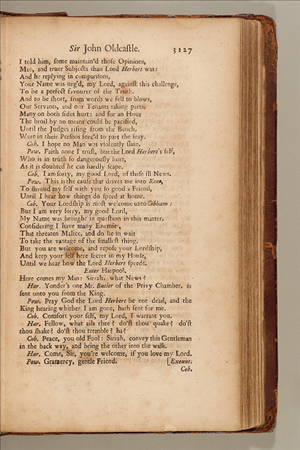 Sir John Oldcastle. 3127
I told him, some maintain'd those Opinions,
Men, and truer Subjects than Lord Herbert was:
And he replying in comparisons,
Your Name was urg'd, my Lord, against this challenge,
To be a perfect favourer of the Truth.
And to be short, from words we fell to blows,
Our Servants, and our Tenants taking parts:
Many on both sides hurt: and for an Hour
The broil by no means could be pacified,
Until the Judges rising from the Bench,
Were in their Persons forc'd to part the fray.
Cob. I hope no Man was violently slain.
Pow. Faith none I trust, but the Lord Herbert's self,
Who is in truth so dangerously hurt,
As it is doubted he can hardly scape.
Cob. I am sorry, my good Lord, of these ill News.
Pow. This is the cause that drives me into Kent,
To shroud my self with you so good a Friend,
Until I hear how things do speed at home.
Cob. Your Lordship is most welcome unto Cobham:
But I am very sorry, my good Lord,
My Name was brought in question in this matter,
Considering I have many Enemies,
That threaten Malice, and do lie in wait
To take the vantage of the smallest thing.
But you are welcome, and repose your Lordship,
And keep your self here secret in my House,
Until we hear how the Lord Herbert speeds.
Enter Harpool.
Here comes my Man: Sirrah, what News?
Har. Yonder's one Mr. Butler of the Privy Chamber, is
sent unto you from the King.
Pow. Pray God the Lord Herbert be not dead, and the
King hearing whither I am gone, hath sent for me.
Cob. Comfort your self, my Lord, I warrant you.
Har. Fellow, what ails thee? do'st thou quake? do'st
thou shake? do'st thou tremble? ha?
Cob. Peace, you old Fool: Sirrah, convey this Gentleman
in the back way, and bring the other into the walk.
Har. Come, Sir, you're welcome, if you love my Lord.
Pow. Gramercy, gentle Friend. [Exeunt.
Cob.